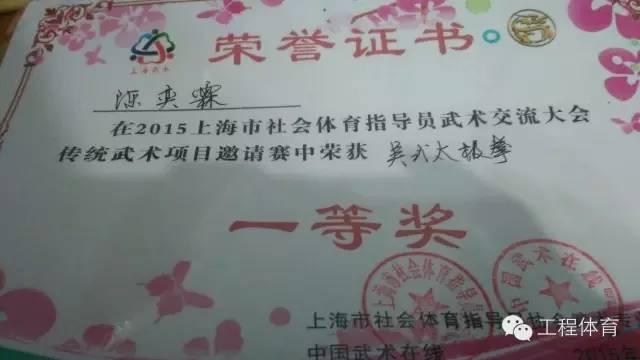 上海武术
荣誉证书
陈奕霖
在2015上海市社会体育指导员武术交流大会
传统武术项目邀请赛中荣获 吴式太极拳
一等奖
上海市社会体育指导
中国武术在线
上海市社会体育指导
中国武术在线
工程体育